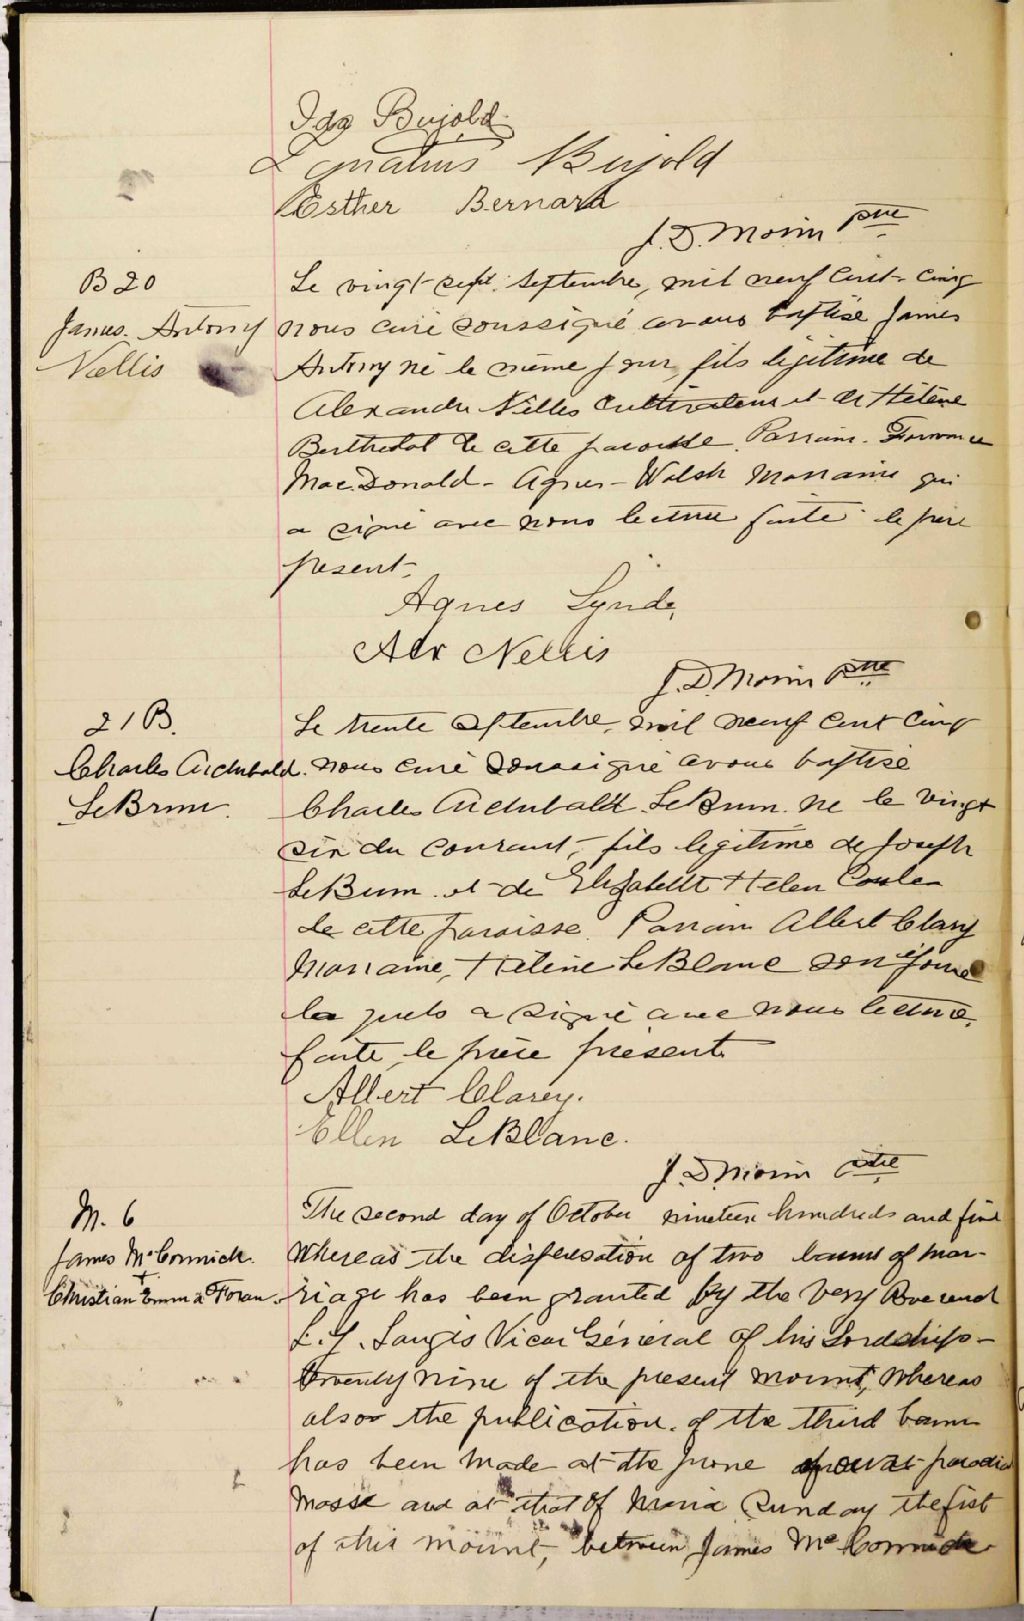 Ida Bujold
Ignatius Bujold
Esther Bernard
J. D. Morin ptre
B 20
James Antony
Nellis
Le vingt-sept Septembre, mil neuf cent cinq
nous curé soussigné avons baptisé James
Antony né le même jour, fils légitime de
Alexandre Nellis cultivateur et de Hélène
de cette paroisse. Parrain
MacDonald - Agnes - Walsh Marraine qui
a signé avec nous lecture faite le père
present.
Agnes
Alex Nellis
J. D. Morin ptre
21 B.
Charles Archibald
LeBrun.
Le trente septembre, mil neuf cent cinq
nous curé soussigné avons baptisé
Charles Archibald LeBrun né le vingt
six du courant, fils legitime de Joseph
LeBrun et de Elizabeth Helen
de cette paroisse. Parrain Albert Clary
Marraine, Hélène LeBlanc son
a signé avec nous lecture
faite, le père présent
Albert Clarey.
Ellen LeBlanc.
J. D. Morin ptre
M. 6
James McCormick
+
Christian Emma Foran
The second day of October nineteen hundreds and five
Whereas the dispensation of two banns of mar-
riage has been granted by the Very Reverend
L. J. Langis Vicar Général of his Lordship
twenty nine of the present mount, whereas
also the publication of the third bann
has been made at the prone of our parochial
Masse and at that of Maria Sunday the first
of this mount, between James McCormick